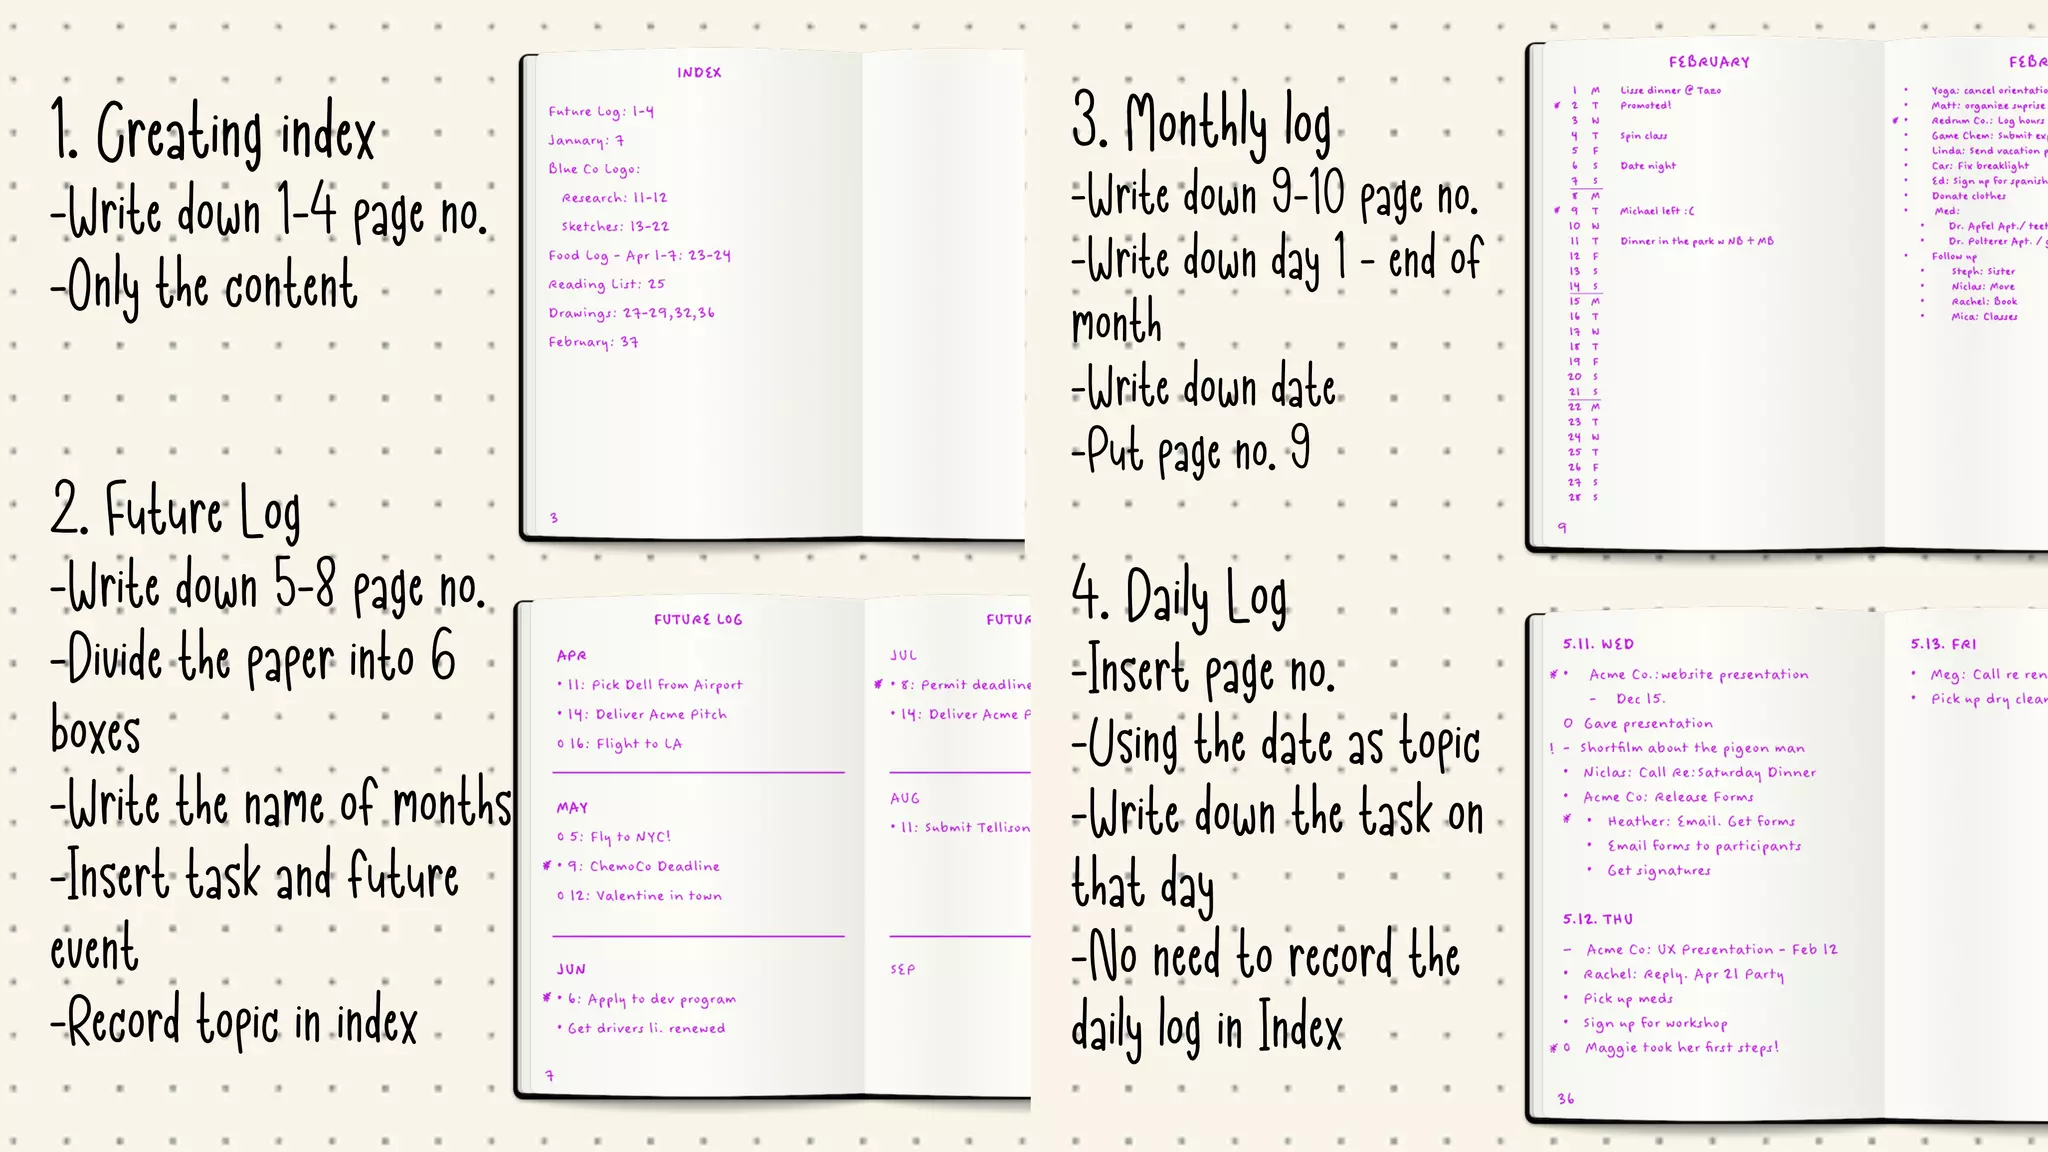 1. Creating index
-Write down 1-4 page no.
-Only the content
INDEX
Future Log: 1-4
January: 7
Blue Co Logo:
Research: 11-12
Sketches: 13-22
Food Log - Apr 1-7: 23-24
Reading List: 25
Drawings: 27-29,32,36
February: 37
3
2. Future Log
-Write down 5-8 page no.
-Divide the paper into 6
boxes
-Write the name of months
-Insert task and future
event
-Record topic in index
FUTURE LOG
APR
• 11: Pick Dell from Airport
• 14: Deliver Acme Pitch
O 16: Flight to LA
MAY
O 5: Fly to NYC!
* • 9: ChemoCo Deadline
O 12: Valentine in town
JUN
* • 6: Apply to dev program
• Get drivers li. renewed
7
JUL
* • 8: Permit deadline
• 14: Deliver Acme
AUG
• 11: Submit Tellison
SEP
3. Monthly log
-Write down 9-10 page no.
-Write down day 1 - end of
month
-Write down date
-Put page no. 9
FEBRUARY
1 M Lisse dinner @ Tazo
* 2 T Promoted!
3 W
4 T Spin class
5 F
6 S Date night
7 S
8 M
* 9 T Michael left :(
10 W
11 T Dinner in the park w NB + MB
12 F
13 S
14 S
15 M
16 T
17 W
18 T
19 F
20 S
21 S
22 M
23 T
24 W
25 T
26 F
27 S
28 S
9
• Yoga: cancel
• Matt: organize suprise
* • Redrum Co.: Log hours
• Game Chem: Submit
• Linda: Send vacation
• Car: Fix breaklight
• Ed: Sign up for spanish
• Donate clothes
• Med:
• Dr. Apfel Apt./
• Dr. Polterer Apt. /
• Follow up
• Steph: Sister
• Niclas: Move
• Rachel: Book
• Mica: Classes
4. Daily Log
-Insert page no.
-Using the date as topic
-Write down the task on
that day
-No need to record the
daily log in Index
5.11. WED
* • Acme Co.:website presentation
- Dec 15.
O Gave presentation
! - Shortfilm about the pigeon man
• Niclas: Call Re:Saturday Dinner
• Acme Co: Release Forms
* • Heather: Email. Get forms
• Email forms to participants
• Get signatures
5.12. THU
- Acme Co: UX Presentation - Feb 12
• Rachel: Reply. Apr 21 Party
• Pick up meds
• Sign up for workshop
* O Maggie took her first steps!
36
5.13. FRI
• Meg: Call re
• Pick up dry